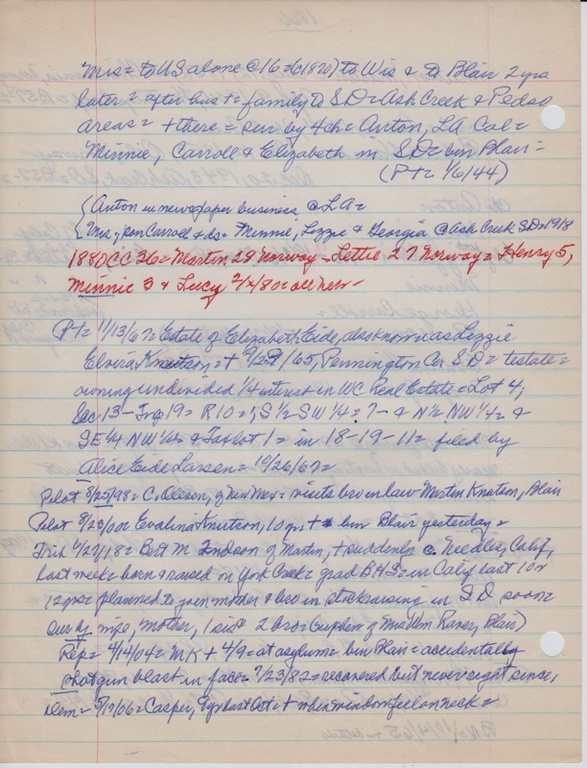 Mrs = to US alone @ 16 = (c1870) to Wis & to Blair 2 yrs
later = after bus t = family to S D = Ash Creek & Pedro
areas = + there = sur by 4 ch = Anton, LA Cal =
Minnie, Carroll & Elizabeth in S D = bur Blair =
(P t = 1/6/44)
Anton in newspaper business @ LA =
Mrs; son Carroll & ds = Minnie, Lizzie & Georgia @ Ash Creek S D = 1918
1880 CC 36 = Martin 28 Norway = Lettie 27 Norway = Henry 5,
Minnie 3 & Lucy 2/4/80 = all here =
P t = 11/13/67 = Estate of Elizabeth Eide, also known as Lizzie
Elvira Knutson = + 9/29/65, Pennington Co S.D = testate =
owning undivided 1/4 interest in WC Real Estate = Lot 4,
Sec 13 - Trp 19 = R 10 = ; S 1/2 - SW 1/4 = 7 - & N 1/2 NW 1/4 &
SE 1/4 NW 1/4 & Taxlot 1 = in 18-19-11 = filed by
Alice Eide Larsen = 10/26/67 =
Pilot 8/25/98 = C. Oleson, of New Mex = visits bro in law Martin Knutson, Blair
Pilot 9/20/00 Evalina Knutson, 10 yr, + bur Blair yesterday =
Trib 6/27/18 = Bert M of Martin, + suddenly @ Needles, Calif,
last week = born & raised on York Creek = grad BHS = in Calif last 10 or
12 yrs = planned to join mother & bro in stockraising in S D soon =
Sur by wife, mother, 1 sis & 2 bro = (nephew of Mrs Blair)
Rep = 4/14/04 = M K + 4/9 = at asylum = bur Blair = accidentally
shotgun blast in face = 7/23/82 = recovered but never right since,
Dem = 5/17/06 = Casper, last Oct = + when window fell on neck =